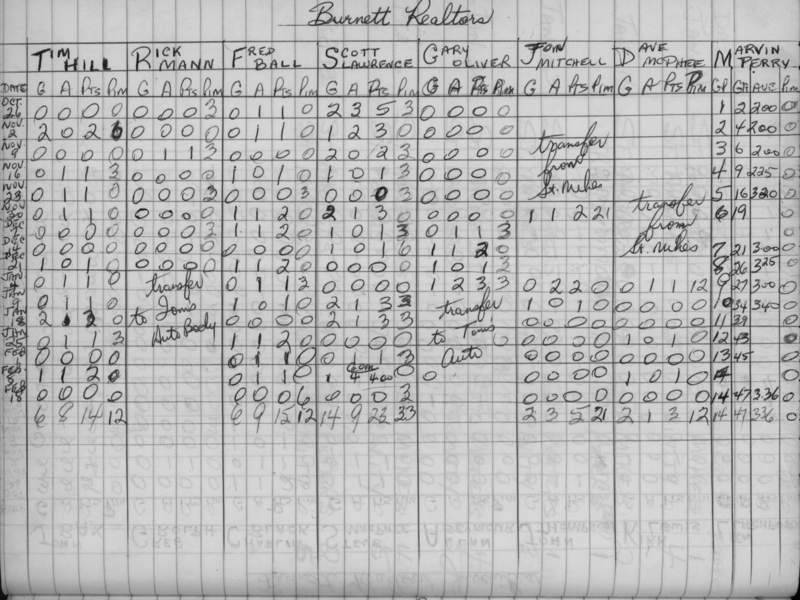 Burnett Realtors
TIM HILL RICK MANN FRED BALL SCOTT LAWRENCE GARY OLIVER JOHN MITCHELL DAVE MCPHEE MARVIN PERRY
DATE G A Pts Pim G A Pts Pim G A Pts Pim G A Pts Pim G A Pts Pim G A Pts Pim G A Pts Pim GP GA AVE Pim
OCT. 26 0 0 0 0 0 0 0 3 0 1 1 0 2 3 5 3 0 0 0 0 1 2 200 0
NOV. 2 2 0 2 6 0 0 0 0 0 1 1 0 1 2 3 0 0 0 0 0 transfer 2 4 200 0
NOV 9 0 0 0 0 0 1 1 3 0 0 0 0 2 0 2 3 0 0 0 0 from 3 6 200 0
NOV 16 0 1 1 3 0 0 0 0 1 0 1 0 1 0 1 3 0 0 0 0 St. Mikes 4 9 225 0
NOV 23 0 1 1 0 0 0 0 3 0 0 0 3 0 0 0 3 0 0 0 0 transfer 5 16 320 0
NOV 30 0 1 1 0 0 0 0 0 1 1 2 0 2 1 3 0 0 0 0 0 1 1 2 21 from 6 19 0
DEC 0 0 0 0 0 0 0 3 1 1 2 0 1 0 1 3 0 0 0 0 St. Mikes
DEC 14 0 0 0 0 0 0 0 0 0 0 0 0 1 0 1 6 1 1 2 0 7 21 300 0
DEC 21 1 0 1 0 0 0 0 0 1 1 2 0 0 0 0 0 1 0 1 3 8 26 325 0
JAN 4 0 1 1 0 transfer 0 1 1 3 0 0 0 0 1 2 3 3 0 2 2 0 0 1 1 12 9 27 300 0
JAN 0 1 1 0 to Toms 1 0 1 0 2 1 3 3 transfer 1 0 1 0 0 0 0 0 10 34 340 0
JAN 18 2 1 3 0 Auto Body 0 0 0 0 2 1 3 3 to Tom's 0 0 0 0 0 0 0 0 11 39 0
JAN 25 0 1 1 3 1 1 2 0 0 0 0 0 Auto 0 0 0 0 1 0 1 0 12 43 0
FEB 1 0 0 0 0 0 1 1 0 0 1 1 3 0 0 0 0 0 0 0 0 13 45 0
FEB 8 1 1 2 0 0 1 1 0 0 0 0 0 0 1 0 1 0 0
FEB 18 0 0 0 0 0 0 0 6 0 0 0 0 0 0 0 0 14 47 336 0
6 8 14 12 6 9 15 12 14 9 23 33 2 3 5 21 2 1 3 12 14 47 336 0